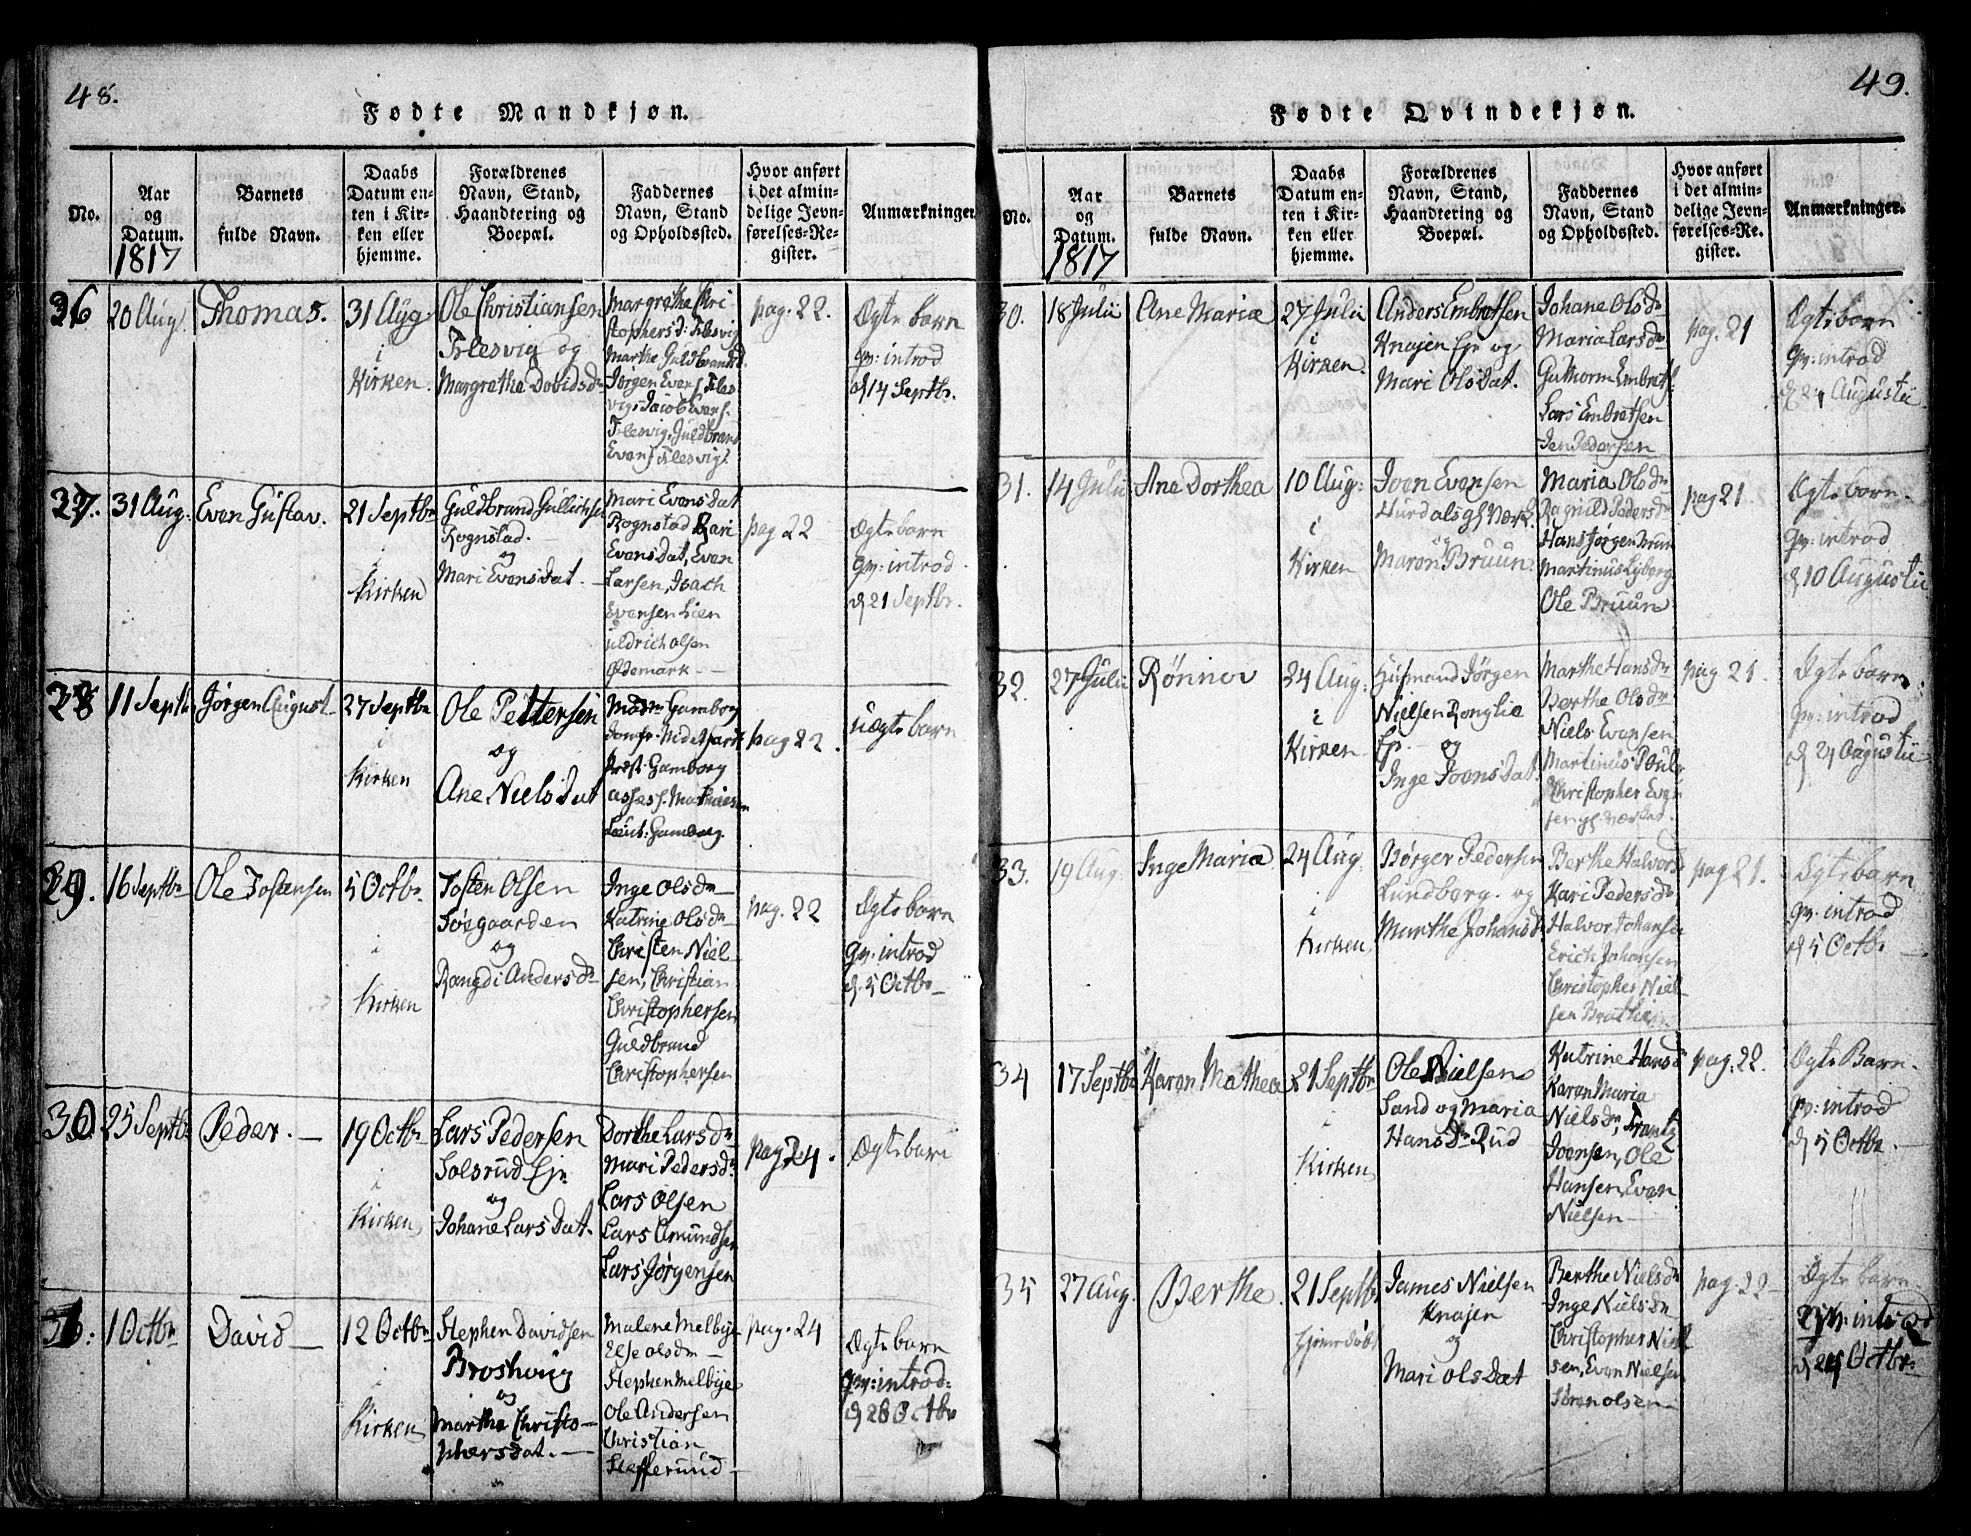 48.
Fødte Mandkjøn.
No.
Aar
og
Datum.
1817
Barnets
fulde Navn.
Daabs
Datum en-
ten i Kir-
ken eller
hjemme.
Forældrenes
Navn, Stand,
Haandtering og
Boepæl.
Faddernes
Navn, Stand
og Opholdssted.
Hvor anført
i det almin-
delige Jevn-
førelses-Re-
gister.
Anmærkninger.
20 Aug.
Thomas.
31 Aug.
i
Kirken.
Ole Christiansen
Flesvig og
Margrethe Davidsdr
Margrethe Chri
stophersd: Flesvig
Marthe Guldbrandsd
Jørgen Evens. Fles
vig, Jacob Evens.
Flesvig, Guldbran
Evens. Flesvig
pag. 22.
Ægte barn
qv: introd
d 14 Septbr.
27.
31 Aug.
Even Gustav.
21 Septbr
i
Kirken
Guldbrand Gullichs
Rognstad.
og
Mari Evensdat.
Mari Evensdat
Rognstad, Kari
Evensdat, Even
Larsen, Isach
Evensen Lien
uldrich Olsen
Ødemark
pag 22
Ægte barn
qv: introd.
d 21 Septbr.
28
11 Septbr
Jørgen August
27 Septbr
i
Kirken
Ole Pettersen
og
Ane Nielsdat
Mad. Gamborg
Jomfr.
Prost Gamborg
assess. Mathiesen
Lieut: Gamborg.
pag 22.
uægte barn
29.
16 Septbr
Ole Tostensen
5 Octbr
i
Kirken
Tosten Olsen
Toegaarden
og
Rangdi Andersdr
Inge Olsdr
Katrine Olsdr
Christen Niel-
sen, Christian
Christophersen
Guldbrand
Christophersen
pag. 22
Ægte barn
qv: introd
d. 5 Octbr
30
25 Septbr
Peder.
19 Octbr
i
Kirken
Lars Pedersen
Solsrud Eje
og
Johane Larsdat.
Dorthe Larsdr
Mari Pedersdr
Lars Olsen
Lars Amundsen
Lars Jørgensen
pag 24.
Ægte barn
1 Octbr
David
12 Octbr
i
Kirken
Stephen Davidsen
Broshvüg
og
Marthe Christo-
phersdat.
Malene Melbye
Else Olsdr
Stephen Melbye
Ole Andersen
Christian
Stefferud
pag. 24
Ægte barn
qv: introd:
d 26 Octbr
49.
Fødte Qvindekjøn.
No.
Aar
og
Datum.
1817
Barnets
fulde Navn.
Daabs
Datum en-
ten i Kir-
ken eller
hjemme.
Forældrenes
Navn, Stand,
Haandtering og
Boepæl.
Faddernes
Navn, Stand
og Opholdssted.
Hvor anført
i det almin-
delige Jevn-
førelses-Re-
gister.
Anmærkninger.
30.
18 Julii
Ane Maria
27 Julii
i
Kirken.
Anders Embretsen
Knajen Eje og
Mari Olsdat.
Johane Olsdr
Maria Larsdr
Guthorm Embrets.
Lars Embretsen
Jen Pedersen
pag. 21
Ægte barn
qv: introd
d 24 Augustii
31.
14 Julii
Ane Dorthea
10 Aug:
i
Kirken
Joen Evensen
Hurdals gl. Værk.
og
Maren Bruun.
Maria Olsdr
Ragnild Pedersdr
Hans Jørgen Bruun
Martinus Lyberg
Ole Bruun
pag 21.
Ægte barn.
qv: introd
d 10 Augustii
32.
27 Julii
Rønnov
24 Aug:
i
Kirken
Husmand Jørgen
Nielsen Ronglie
Ej. og
Inge Joensdat.
Marthe Hansdr
Berthe Olsdr
Niels Evensen
Martinus Pouls
Christopher Even
sen gl. værket.
pag 21.
Ægte barn
qv: introd
d 24 Augustii
33.
19 Aug.
Inge Maria
24 Aug
i
Kirken
Børger Pedersen
Lundberg. og
Marthe Johansd
Berthe Halvorsd
Kari Pedersdr
Halvor Johansen
Erich Johansen
Christopher Niel-
sen Bratlien
pag 21.
Ægte barn
qv: introd
d 5 Octbr
34
17 Septbr
Karen Mathea
21 Septbr
i
Kirken
Ole Nielsen
Sand og Maria
Hansdr Rud
Katrine Hansd
Karen Maria
Nielsdr, Frantz
Joensen, Ole
Hansen, Even
Nielsen
pag. 22.
Ægte Barn.
qv: introd
d 5 Octbr.
35
27 Aug.
Berthe.
21 Septbr
hjemmedøbt
James Nielsen
Knajen
og
Mari Olsdat
Berthe Nielsdr
Inge Nielsdr
Christopher Niel
sen, Even Nielsen
Søren Olsen
pag. 22
Ægte barn
qv: introd
Octbr